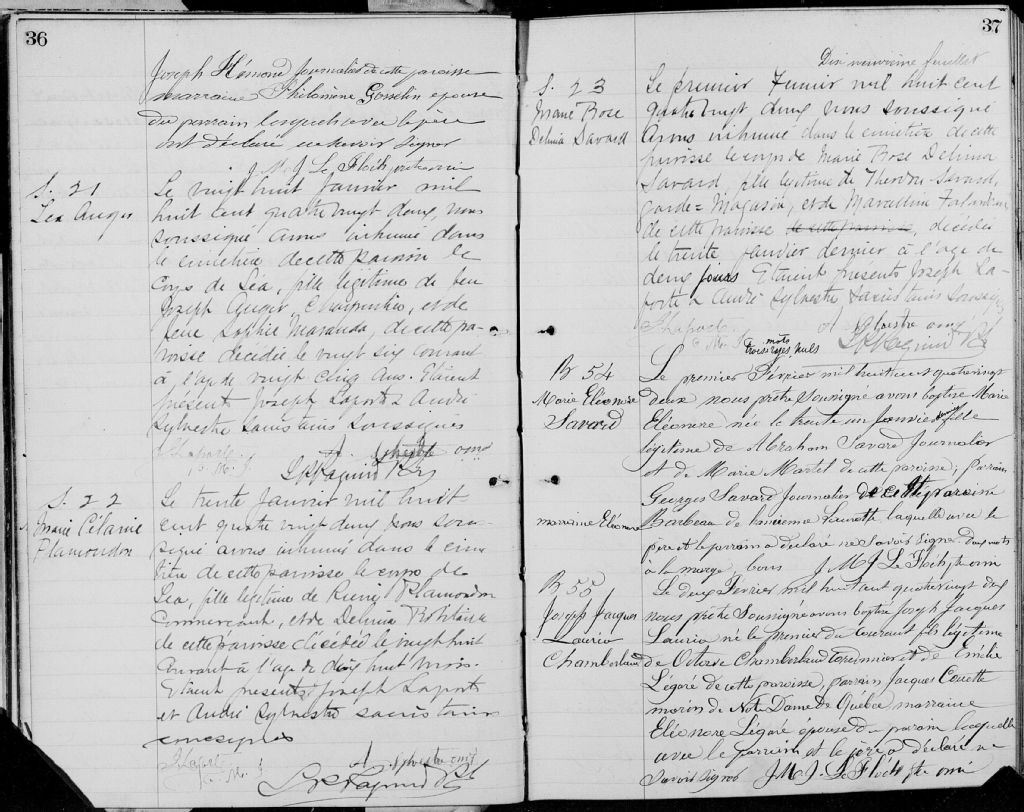 36
Joseph Hémond journalier de cette paroisse
marraine Philomène Gosselin epouse
du parrain lesquels avec le père
ont déclaré ne savoir signer
J. M. J. Le Floch, ptre
S. 21
Lea Auger
Le vingt huit Janvier mil
huit cent quatre vingt deux, nous
soussigné avons inhumé dans
le cimetière de cette paroisse le
corps de Léa, fille legitime de feu
Joseph Auger Charpentier, et de
feue Sophie Maranda, de cette pa-
roisse décédée le vingt six courant
à l'age de vingt cinq ans. Etaient
présent Joseph Laporte & André
Sylvestre sacristains soussignés
J. Laporte
A. Sylvestre
S. 22
Marie Célanire
Plamondon
Le trente Janvier mil huit
cent quatre vingt deux nous sous-
signé avons inhumé dans le cime
tière de cette paroisse le corps de
Lea, fille legitime de Plamondon
Commercant, et de Delima Robitaille
de cette paroisse décédée le vingt huit
courant à l'age de dix huit mois.
Etaient presents Joseph Laporte
et André Sylvestre sacristains
J Laporte
A Sylvestre
37
Dix neuvième feuillet
S. 23
Marie Rose
Delima Savard
Le premier Fevrier mil huit cent
quatre vingt deux nous soussigné
Avons inhumé dans le cimetière de cette
paroisse le corps de Marie Rose Delima
Savard, fille legitime de Théodore Savard,
garde-Magasin, et de Marcelline Falardeau
de cette paroisse de cette paroisse, décédée
le trente janvier dernier à l'age de
deux jours Etaient présents Joseph La-
porte & André Sylvestre sacristains soussignés
J Laporte
A Sylvestre
trois mots rayés nuls
B 54
Marie Eléonore
Savard
Le premier Février mil huit cent quatre vingt
deux nous prêtre soussigné avons baptisé Marie
Eléonore née le trente un Janvier dernier fille
légitime de Abraham Savard Journalier
et de Marie Martel de cette paroisse; parrain
Georges Savard Journalier de cette paroisse
marraine Eléonore
Barbeau de l'ancienne Lorette laquelle avec le
père et le parrain a déclaré ne savoir signer deux mots
à la marge bons J M J Le Floch, ptre
B 55
Joseph Jacques
Lauria
Chamberland
Le deux Février mil huit cent quatre vingt deux
nous prêtre Soussigné avons baptisé Joseph Jacques
Lauria né le premier du courant fils légitime
de Octave Chamberland Cordonnier et de Emélie
Légaré de cette paroisse, parrain Jacques Couette
marin de Notre Dame de Québec marraine
Eléonore Légaré épouse du parrain laquelle
avec le parrain et le père a déclaré ne
savoir signer J. M. J. Le Floch ptre